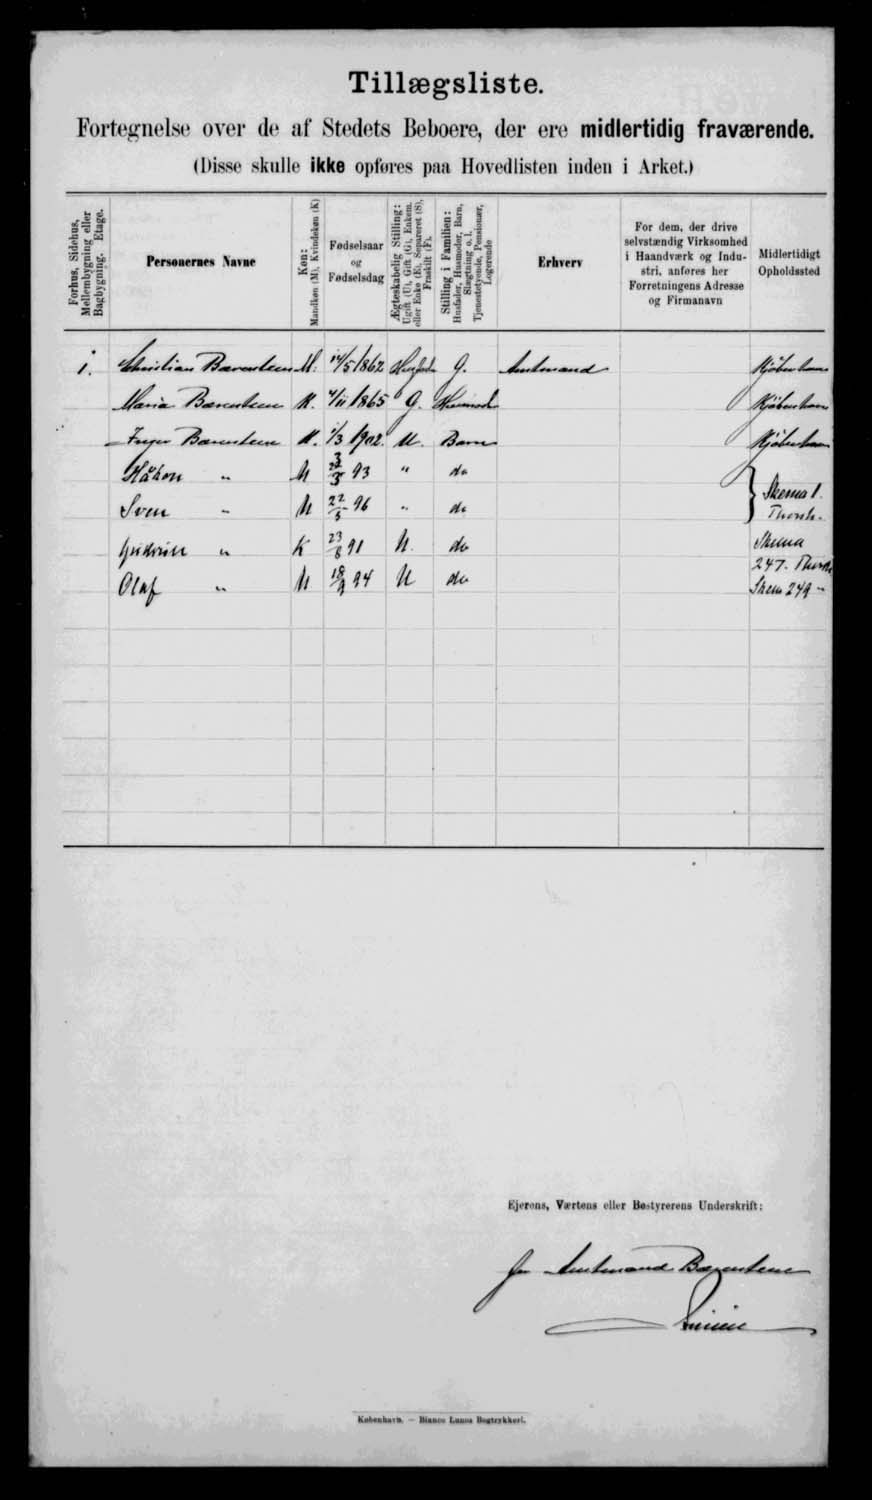 Tillægsliste.
Fortegnelse over de af Stedets Beboere, der ere midlertidig fraværende.
(Disse skulle ikke opføres paa Hovedlisten inden i Arket.)
Forhus, Sidehus, Mellembygning eller Bagbygning. Etage.
Personernes Navne
Køn: Mandkøn (M), Kvindekøn (K)
Fødselsaar og Fødselsdag
Ægteskabelig Stilling: Ugift (U), Gift (G), Enkem. eller Enke (E), Separeret (S), Fraskilt (F).
Stilling i Familien: Husfader, Husmoder, Barn, Slægtning o.l. Tjenestetyende, Pensionær, Logerende
Erhverv
For dem, der drive selvstændig Virksomhed i Haandværk og Industri, anføres her Forretningens Adresse og Firmanavn
Midlertidigt Opholdssted
1. Christian Barentsen M. 14/5 1862 G. Amtmand Kjöbenhavn
Maria Barentsen K. 4/11 1865 G. Kjöbenhavn
Inger Barentsen K. 1/3 1902. U. Barn Kjöbenhavn
Håkon " M 93 " do
Sven " M 22/5 96 " do } Skema 1. Thorsh.
K 23/8 91 U. do Skema 247.
Olaf " M 18/9 94 U do Skem 249 "
Ejerens, Værtens eller Bestyrerens Underskrift:
Amtmand Barentsen
København. — Bianco Lunos Bogtrykkeri.